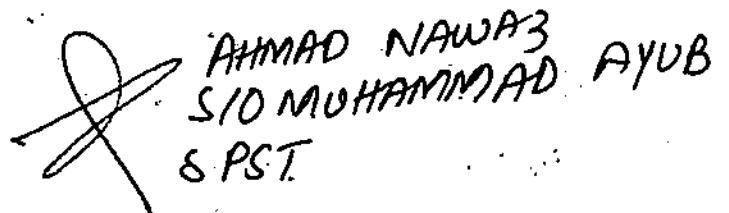 AHMAD NAWAZ
S/O MUHAMMAD AYUB
SPST.